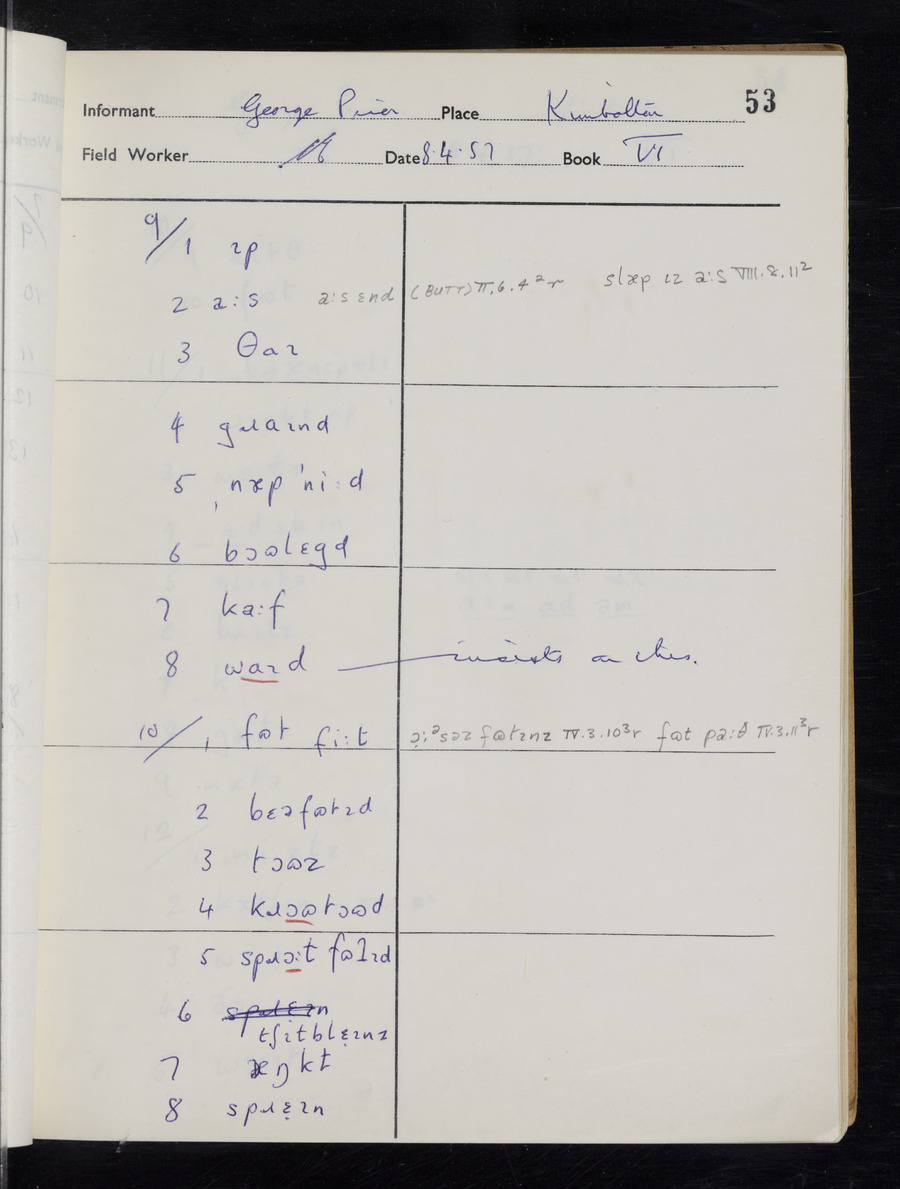 53
Informant George Prior Place Kimbolton
Field Worker Date 8.4.57 Book VI
9/1 ɪp
2 a:s a:s ɛnd (BUTT) II.6.4²r slæp ɪz a:s VIII.8.11²
3 θaɪ
4 gɹaɪnd
5 ˌnæp ˈni:d
6 bɔɷlɛgd
7 ka:f
8 waɪd — insists on this.
10/1 fɷt fi:t ə:ᵊsəz fɷtɪnz IV.3.10³r fɷt pa:θ IV.3.11³r
2 bɛəfɷtɪd
3 tɔɷz
4 kɹɔɷtɔɷd
5 spɹɔ:t fɷlɪd
6 tʃɪtblɛɪnz
7 æŋkt
8 spɹɛɪn